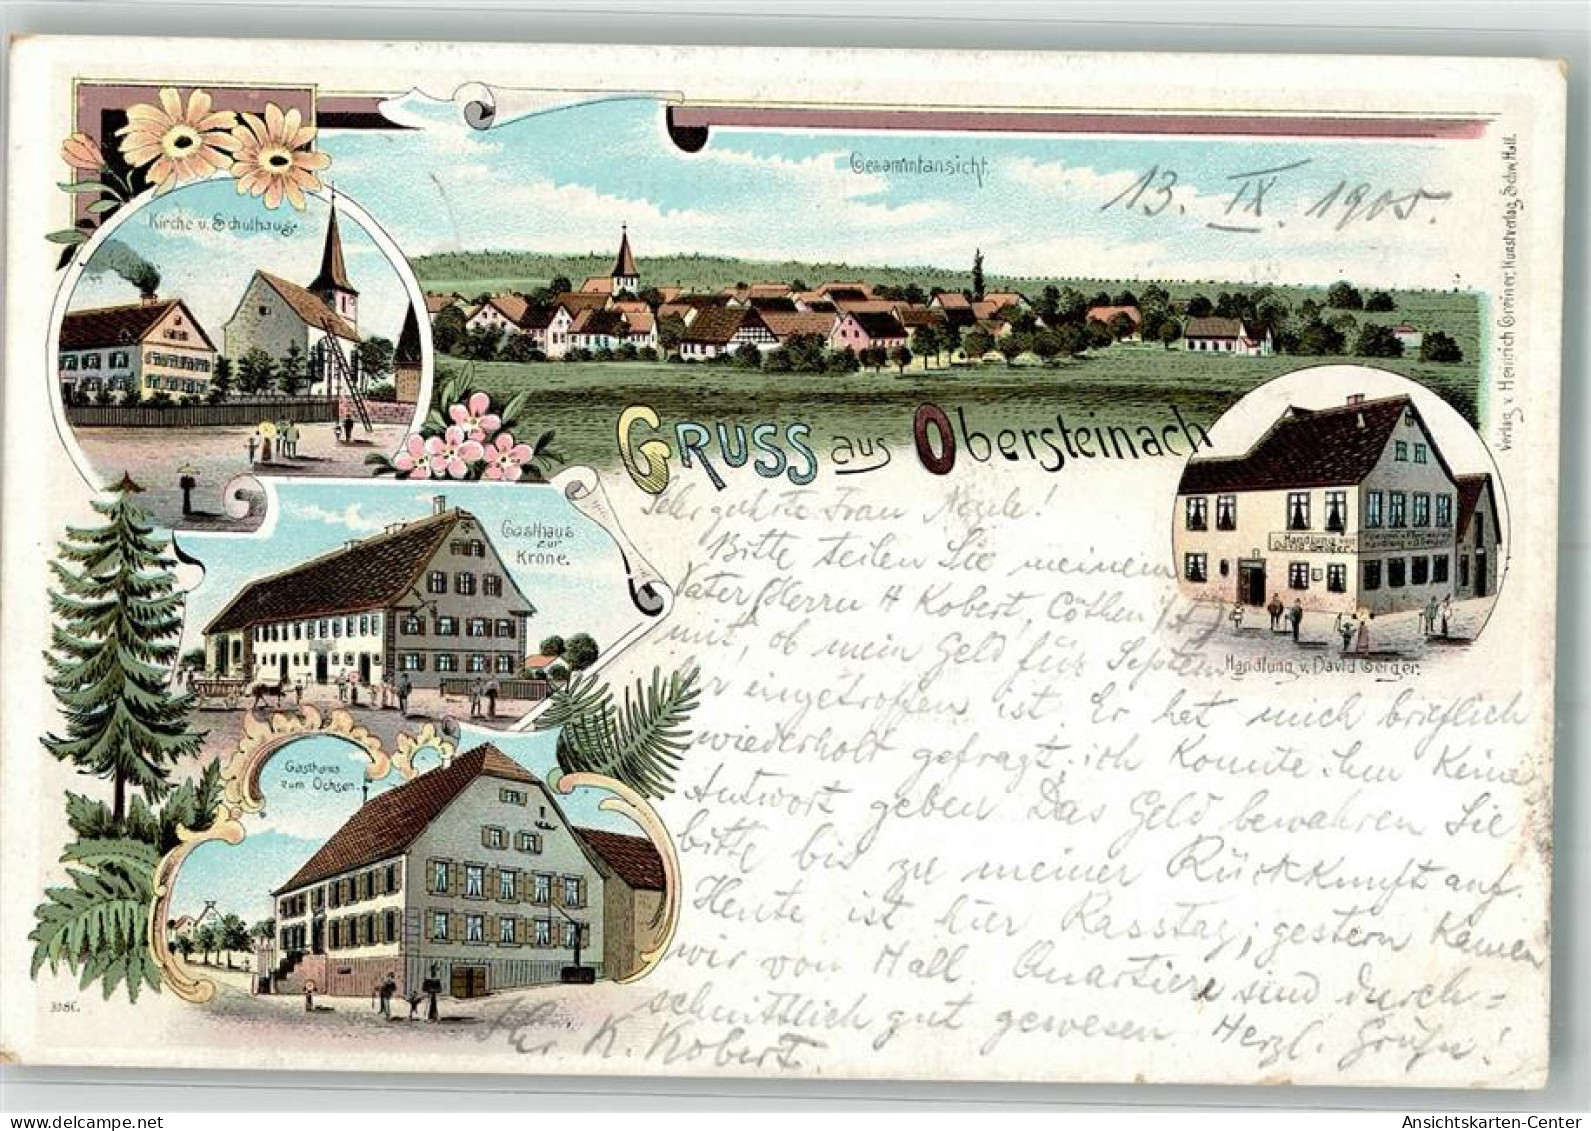 Gesammtansicht.
13. IX. 1905.
Kirche u. Schulhaus
Verlag v. Heinrich Greiner, Kunstverlag, Schw. Hall.
GRUSS aus Obersteinach
Gasthaus
zur
Krone.
Handlung von
David Geiger.
Handlung v. David Geiger.
Gasthaus
zum Ochsen.
3086.
Sehr geehrte Frau Negele!
Bitte teilen Sie meinem
Vater (Herrn A Kobert, Cöthen /A.)
mit, ob mein Geld für Septem
ber eingetroffen ist. Er hat mich brieflich
wiederholt gefragt, ich konnte ihm keine
Antwort geben. Das Geld bewahren Sie
bitte bis zu meiner Rückkunft auf.
Heute ist hier Rasttag; gestern kamen
wir von Hall. Quartiere sind durch=
schnittlich gut gewesen. Herzl. Grüße!
Ihr K. Kobert.
Ansichtskarten-Center
www.delcampe.net